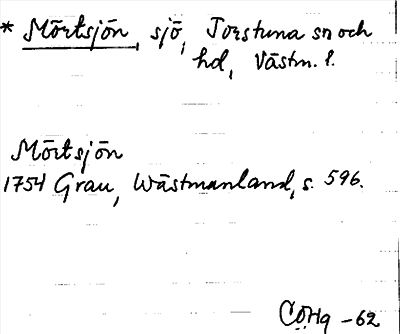 * Mörtsjön, sjö, Torstuna sn och
hd, Västm. l.
Mörtsjön
1754 Grau, Wästmanland, s. 596.
CÖHg -62